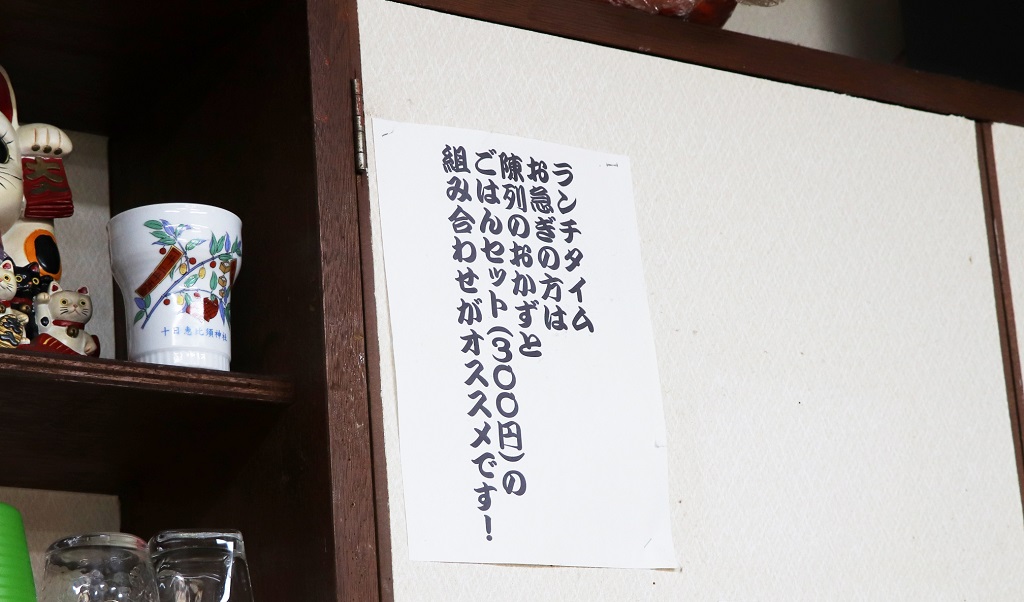 ランチタイム
お急ぎの方は
陳列のおかずと
ごはんセット(300円)の
組み合わせがオススメです!
十日恵比須神社